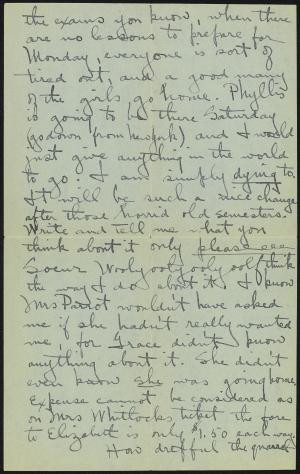 the exams you know, when there
are no lessons to prepare for
Monday, everyone is sort of
tired out, and a good many
of the girls go home. Phyllis
is going to be there Saturday
(go down from New York) and I would
just give anything in the world
to go. I am simply dying to.
It will be such a nice change
after those horrid old semesters.
Write and tell me what you
think about it only please
Soeur Woolyoolyoolyoolf think
the way I do about it. I know
Mrs Pierrot wouldn't have asked
me if she hadn't really wanted
me, for Grace didn't know
anything about it. She didn't
even know she was going home.
Expense cannot be considered as
on Mrs Whitlocks ticket the fare
to Elizabeth is only $1.50 each way.
How dreadful the